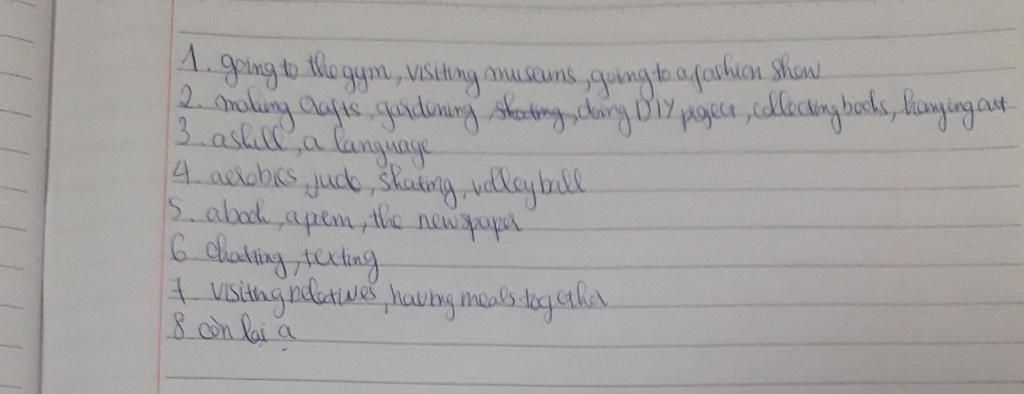 1. going to the gym, visiting museums, going to a fashion show
2. making crafts, gardening, skating, doing DIY project, collecting books, hanging out
3. a skill, a language
4. aerobics, judo, skating, volleyball
5. a book, a poem, the newspaper
6 chatting, texting
7 visiting relatives, having meals together
8 còn lại ạ